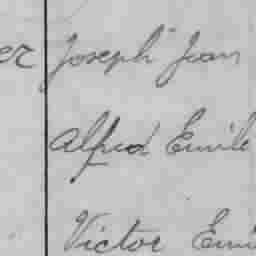 er Joseph Jean
Alfred Emile
Victor Emi